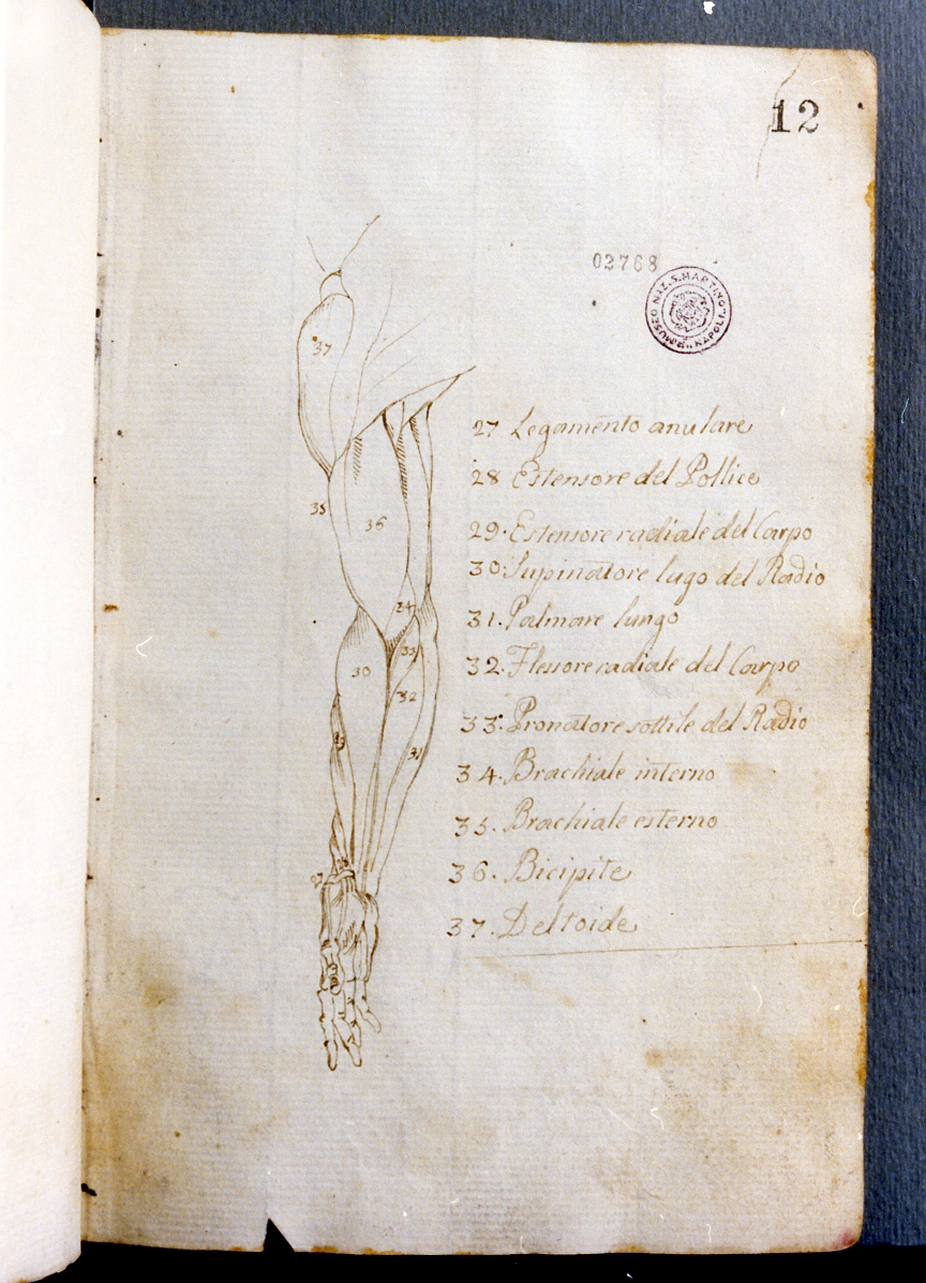 12
02768
MUSEO NAZ. S. MARTINO NAPOLI
37
35
36
34
33
30
32
29
31
28
27
27 Legamento anulare
28 Estensore del Pollice
29. Estensore radiale del Carpo
30. Supinatore lugo del Radio
31. Palmare lungo
32. Flessore radiale del Carpo
33. Pronatore sottile del Radio
34. Brachiale interno
35. Brachiale esterno
36. Bicipite
37. Deltoide